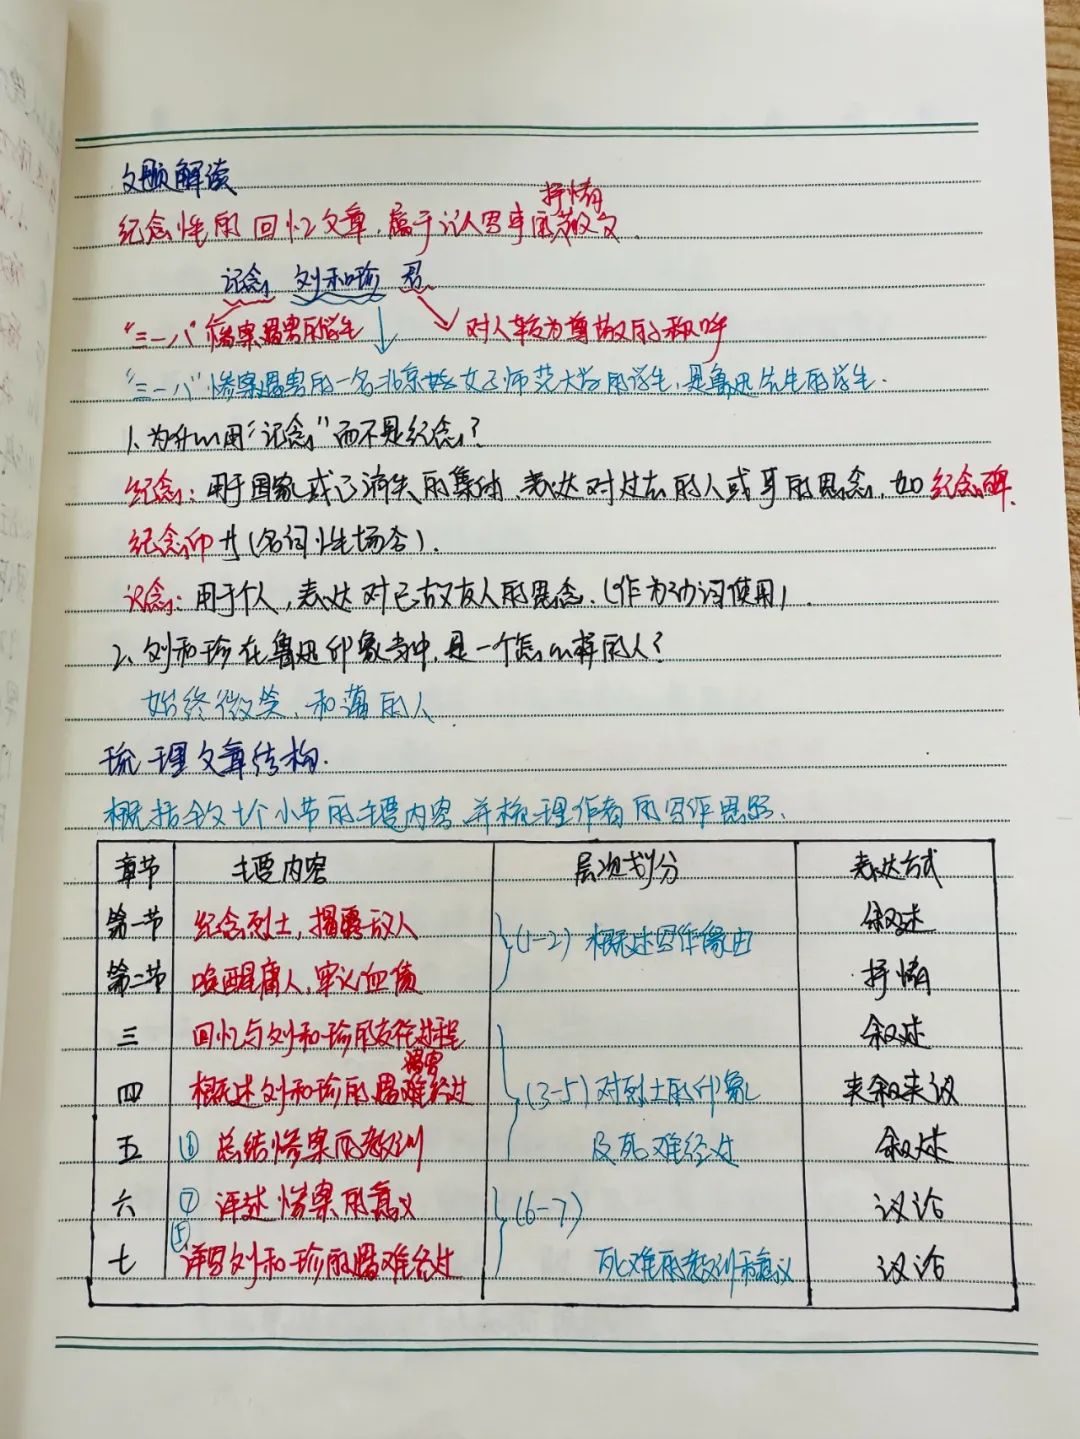 文题解读
抒情
纪念性的回忆文章，属于记人写事的散文
记念 刘和珍 君.
"三一八"惨案遇害的学生 对人较为尊敬的称呼
"三一八"惨案遇害的一名北京女子师范大学的学生,是鲁迅先生的学生.
1、为什么用"记念"而不是纪念?
纪念:用于国家或已消失的集体、表达对过去的人或事的思念,如纪念碑、
纪念邮片(名词性场合).
记念:用于个人,表达对已故友人的思念.(作为动词使用)
2、刘和珍在鲁迅印象当中,是一个怎么样的人?
始终微笑、和蔼的人
梳理文章结构.
概括全文七个小节的主要内容,并梳理作者的写作思路.
章节 主要内容 层次划分 表达方式
第一节 纪念烈士,揭露敌人 叙述
(1-2) 概述写作缘由
第二节 唤醒庸人,牢记血债 抒情
三 回忆与刘和珍的交往过程 叙述
遇害
四 概述刘和珍的遇难经过 (3-5)对烈士的印象 夹叙夹议
五 ⑥ 总结惨案的教训 及死难经过 叙述
六 ⑦ 评述惨案的意义 (6-7) 议论
七 ⑤ 详写刘和珍的遇难经过 死难的教训和意义 议论